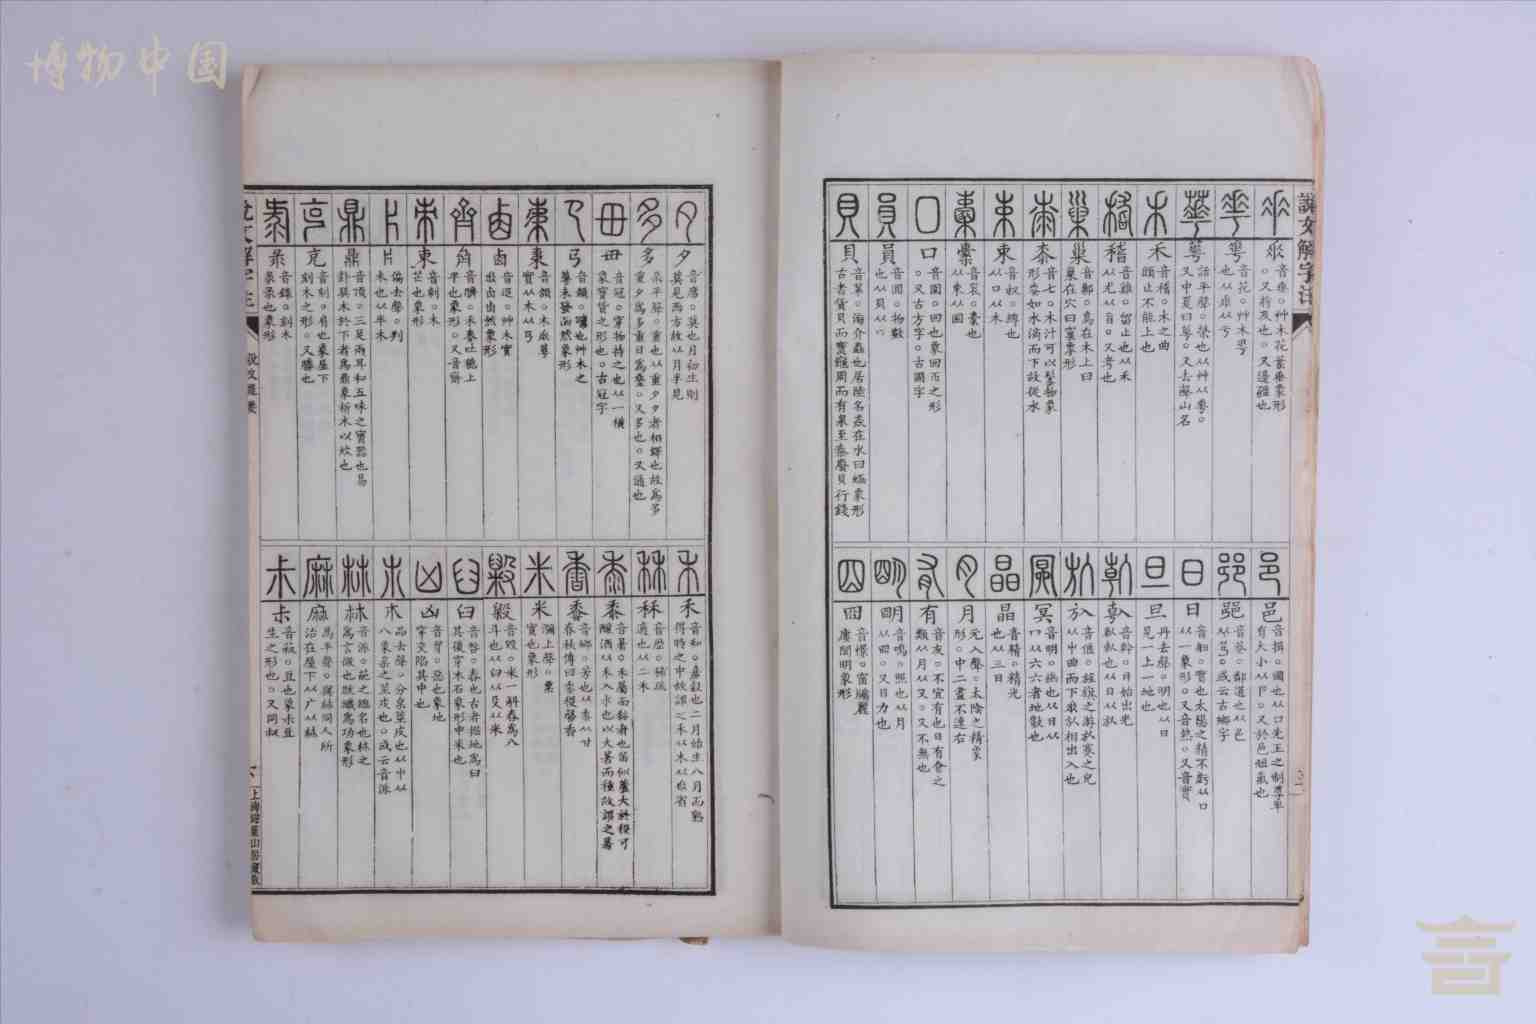 博物中国
說文解字注
𠂹 音垂。艸木花葉垂象形
。又將灰也。又邊礙也
音花。艸木䔢
也从𠂹从亏
話平聲。榮也从艸从𠌶。
又中夏曰䔢。又去聲山名
禾 音稽。木之曲
頭止不能上也
稽 音雞。留止也从禾
从尤从旨。又考也
巢 音鄛。鳥在木上曰
巢在穴曰窠象形
桼 音七。木汁可以䰍物象
形桼如水滴而下故從水
束 音叔。縛也
从口从木
橐 音衮。橐也
从束从圂
囗 音圍。回也象回帀之形
。又古方字。古國字
員 音圓。物數
也从貝从囗
貝 音輩。海介蟲也居陸名猋在水曰蜬象形
古者貨貝而寶龜周而有泉至秦廢貝行錢
邑 音揖。國也从囗先王之制尊卑
有大小从卪。又於邑短氣也
音巷。鄰道也从邑
从𨙨。或云古鄉字
日 音馹。實也太陽之精不虧从囗
从一象形。又音熱。又音實
旦 丹去聲。明也从日
見一上一地也
倝 音幹。日始出光
倝倝也从日从㫃
㫃 音偃。旌旗之游㫃蹇之皃
从屮曲而下㫃相出入也
冥 音明。幽也从日从
冂从六六者地數也
晶 音精。精光
也从三日
月 元入聲。太陰之精象
形。中二畫不連右
有 音友。不宜有也日有食之
類从月从又。又不無也
朙 音鳴。照也从月
从囧。又目力也
囧 音憬。窗牖麗
廔闓明象形
夕 音席。莫也月初生則
莫見西方故从月半見
多 朶平聲。重也从重夕夕者相繹也故爲多
重夕爲多重日爲疊。又多也。又過也
毌 音冠。穿物持之也从一橫
象寶貨之形也。古冠字
𢎘 音頷。嘾也艸木之
蓴未發函然象形
音頷。木垂
實从木从弓
𠧪 音迢。艸木實
垂𠧪𠧪然象形
𪗄 音臍。禾麥吐穗上
平也象形。又音齋
朿 音刺。木
芒也象形
片 偏去聲。判
木也从半木
鼎 音頂。三足兩耳和五味之寶器也易
卦巽木於下者爲鼎象析木以炊也
克 音刻。肩也象屋下
刻木之形。又勝也
彔 音錄。刻木
彔彔也象形
禾 音和。嘉穀也二月始生八月而熟
得時之中故謂之禾从木从𠂹省
秝 音歷。稀疏
適也从二禾
黍 音暑。禾屬而黏者也苗似蘆大於稷可
釀酒从禾入水也以大暑而種故謂之黍
香 音鄉。芳也从黍从甘
春秋傳曰黍稷馨香
米 瀰上聲。粟
實也象形
毇 音毀。米一斛舂爲八
斗也从臼从殳从米
臼 音咎。舂也古者掘地爲臼
其後穿木石象形中米也
凶 音胷。惡也象地
穿交陷其中也
𣎳 品去聲。分枲莖皮也从屮从
八象枲之莖皮也。或云音派
𣏟 音派。葩之總名也𣏟之
爲言微也微纖爲功象形
麻 馬平聲。與𣏟同人所
治在屋下从广从𣏟
尗 音菽。豆也象尗豆
生之形也。又同叔
說文解字注
說文提要
上海錦章山房發兌